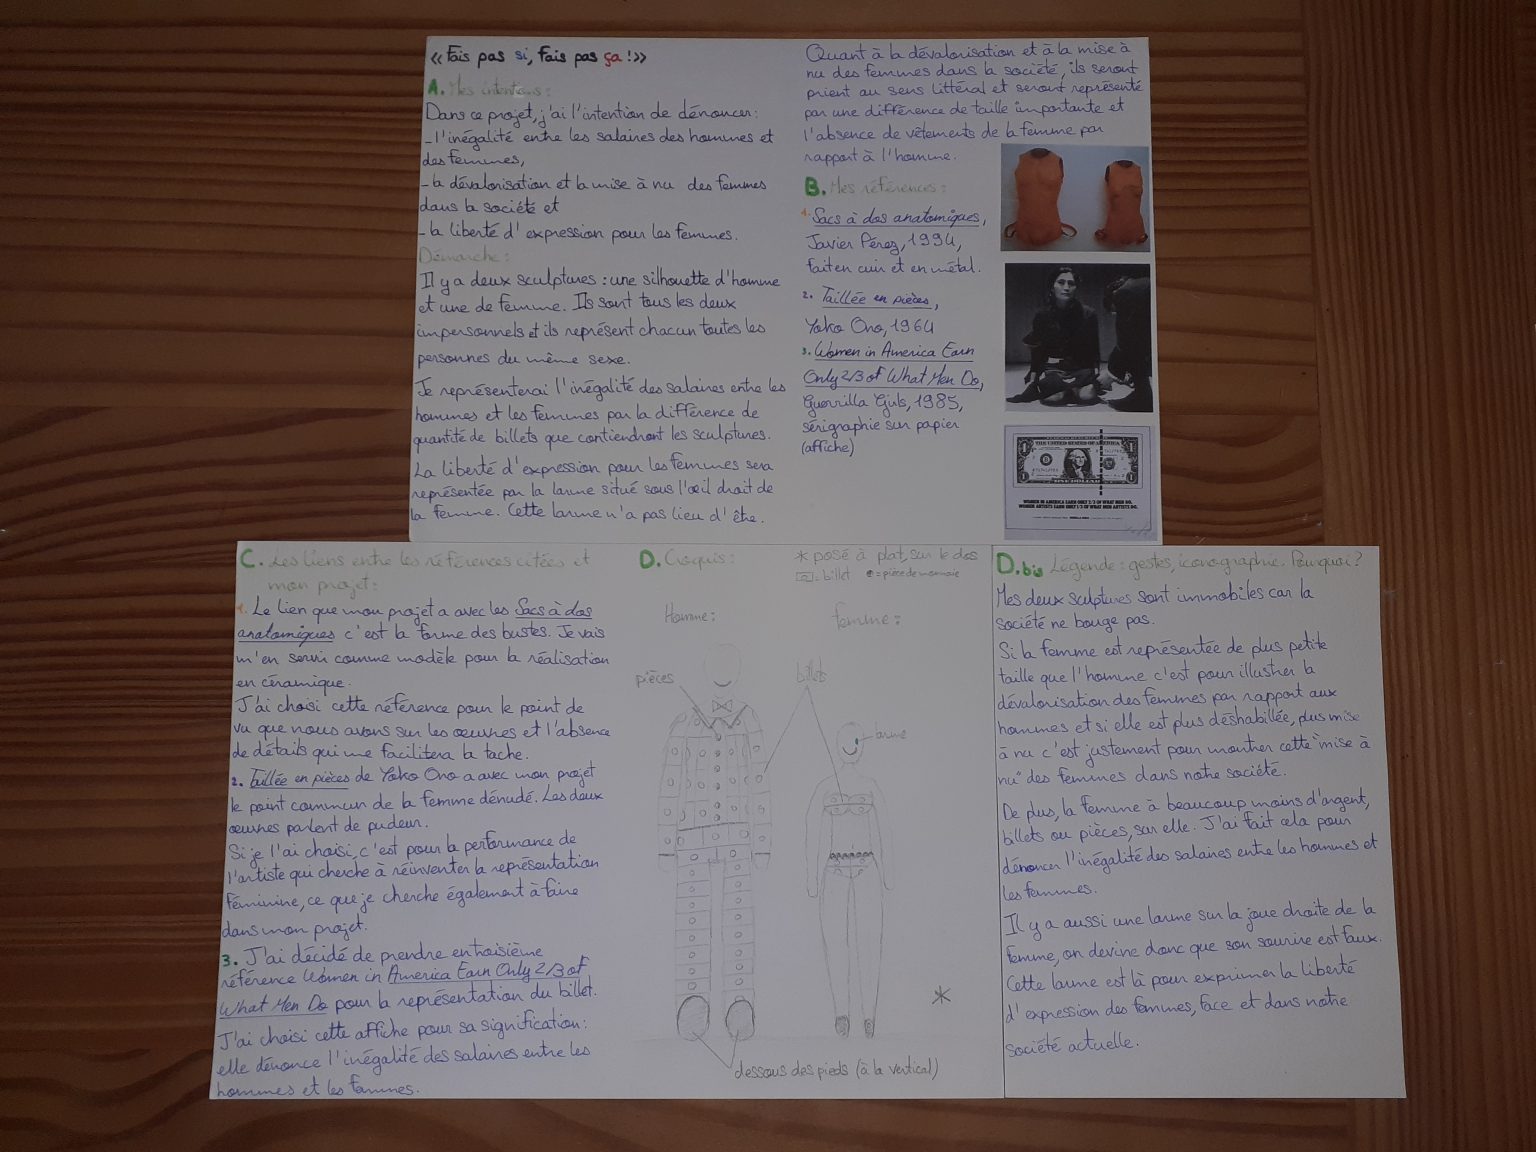 « Fais pas si, fais pas ça ! »
A. Mes intentions :
Dans ce projet, j'ai l'intention de dénoncer :
- l'inégalité entre les salaires des hommes et
des femmes,
- la dévalorisation et la mise à nu des femmes
dans la société et
- la liberté d'expression pour les femmes.
Démarche :
Il y a deux sculptures : une silhouette d'homme
et une de femme. Ils sont tous les deux
impersonnels et ils représent chacun toutes les
personnes du même sexe.
Je représenterai l'inégalité des salaires entre les
hommes et les femmes par la différence de
quantité de billets que contiendront les sculptures.
La liberté d'expression pour les femmes sera
représentée par la larme situé sous l'œil droit de
la femme. Cette larme n'a pas lieu d'être.
Quant à la dévalorisation et à la mise à
nu des femmes dans la société, ils seront
prient au sens littéral et seront représenté
par une différence de taille importante et
l'absence de vêtements de la femme par
rapport à l'homme.
B. Mes références :
1. Sacs à dos anatomiques,
Javier Pérez, 1994,
fait en cuir et en métal.
2. Taillée en pièces,
Yoko Ono, 1964
3. Women in America Earn
Only 2/3 of What Men Do,
Guerrilla Girls, 1985,
sérigraphie sur papier
(affiche)
THE UNITED STATES OF AMERICA
ONE DOLLAR
WOMEN IN AMERICA EARN ONLY 2/3 OF WHAT MEN DO.
WOMEN ARTISTS EARN ONLY 1/3 OF WHAT MEN ARTISTS DO.
C. Les liens entre les références citées et
mon projet :
1. Le lien que mon projet a avec les Sacs à dos
anatomiques c'est la forme des bustes. Je vais
m'en servir comme modèle pour la réalisation
en céramique.
J'ai choisi cette référence pour le point de
vu que nous avons sur les œuvres et l'absence
de détails qui me facilitera la tache.
2. Taillée en pièces de Yoko Ono a avec mon projet
le point commun de la femme dénudé. Les deux
œuvres parlent de pudeur.
Si je l'ai choisi, c'est pour la performance de
l'artiste qui cherche à réinventer la représentation
féminine, ce que je cherche également à faire
dans mon projet.
3. J'ai décidé de prendre en troisième
référence Women in America Earn Only 2/3 of
What Men Do pour la représentation du billet.
J'ai choisi cette affiche pour sa signification :
elle dénonce l'inégalité des salaires entre les
hommes et les femmes.
D. Croquis :
* posé à plat, sur le dos
= billet = pièce de monnaie
Homme :
femme :
pièces
billets
larme
*
dessous des pieds (à la vertical)
D.bis Légende : gestes, iconographie. Pourquoi ?
Mes deux sculptures sont immobiles car la
société ne bouge pas.
Si la femme est représentée de plus petite
taille que l'homme c'est pour illustrer la
dévalorisation des femmes par rapport aux
hommes et si elle est plus déshabillée, plus mise
à nu c'est justement pour montrer cette "mise à
nu" des femmes dans notre société.
De plus, la femme à beaucoup moins d'argent,
billets ou pièces, sur elle. J'ai fait cela pour
dénoncer l'inégalité des salaires entre les hommes et
les femmes.
Il y a aussi une larme sur la joue droite de la
femme, on devine donc que son sourire est faux.
Cette larme est là pour exprimer la liberté
d'expression des femmes, face et dans notre
société actuelle.